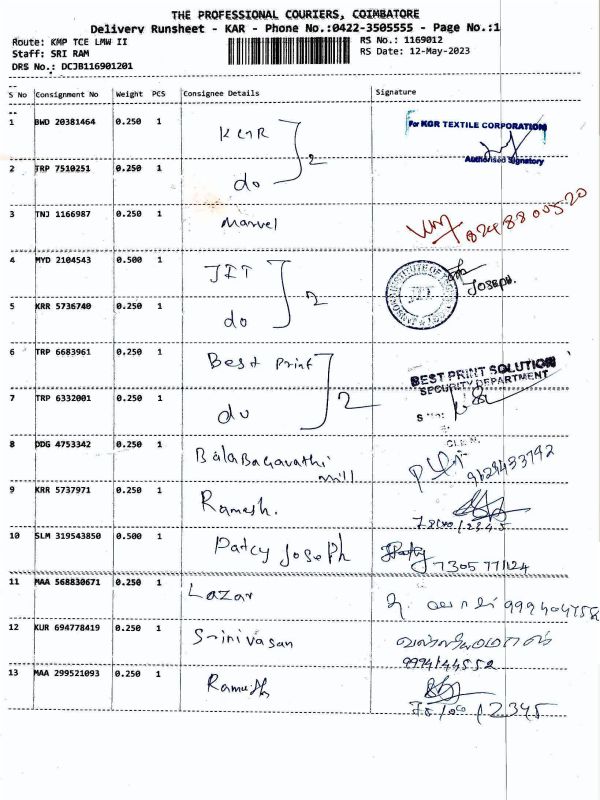 THE PROFESSIONAL COURIERS, COIMBATORE
Delivery Runsheet - KAR - Phone No.:0422-3505555 - Page No.:1
Route: KMP TCE LMW II RS No.: 1169012
Staff: SRI RAM RS Date: 12-May-2023
DRS No.: DCJB116901201
S No Consignment No Weight PCS Consignee Details Signature
1 BWD 20381464 0.250 1 KGR
For KGR TEXTILE CORPORATION
Authorised Signatory
2 TRP 7510251 0.250 1 do 2
3 TNJ 1166987 0.250 1 Marvel 8248800520
4 MYD 2104543 0.500 1 JIT
JOSEPH.
5 KRR 5736740 0.250 1 do 2
6 TRP 6683961 0.250 1 Best Print
BEST PRINT SOLUTION
SECURITY DEPARTMENT
7 TRP 6332001 0.250 1 do 2
8 DDG 4753342 0.250 1 BalaBagavathi mill 9629433792
9 KRR 5737971 0.250 1 Ramesh.
10 SLM 319543850 0.500 1 Patcy Joseph 7305771124
11 MAA 568830671 0.250 1 Lazar
12 KUR 694778419 0.250 1 Srinivasan
9994144552
13 MAA 299521093 0.250 1 Ramesh